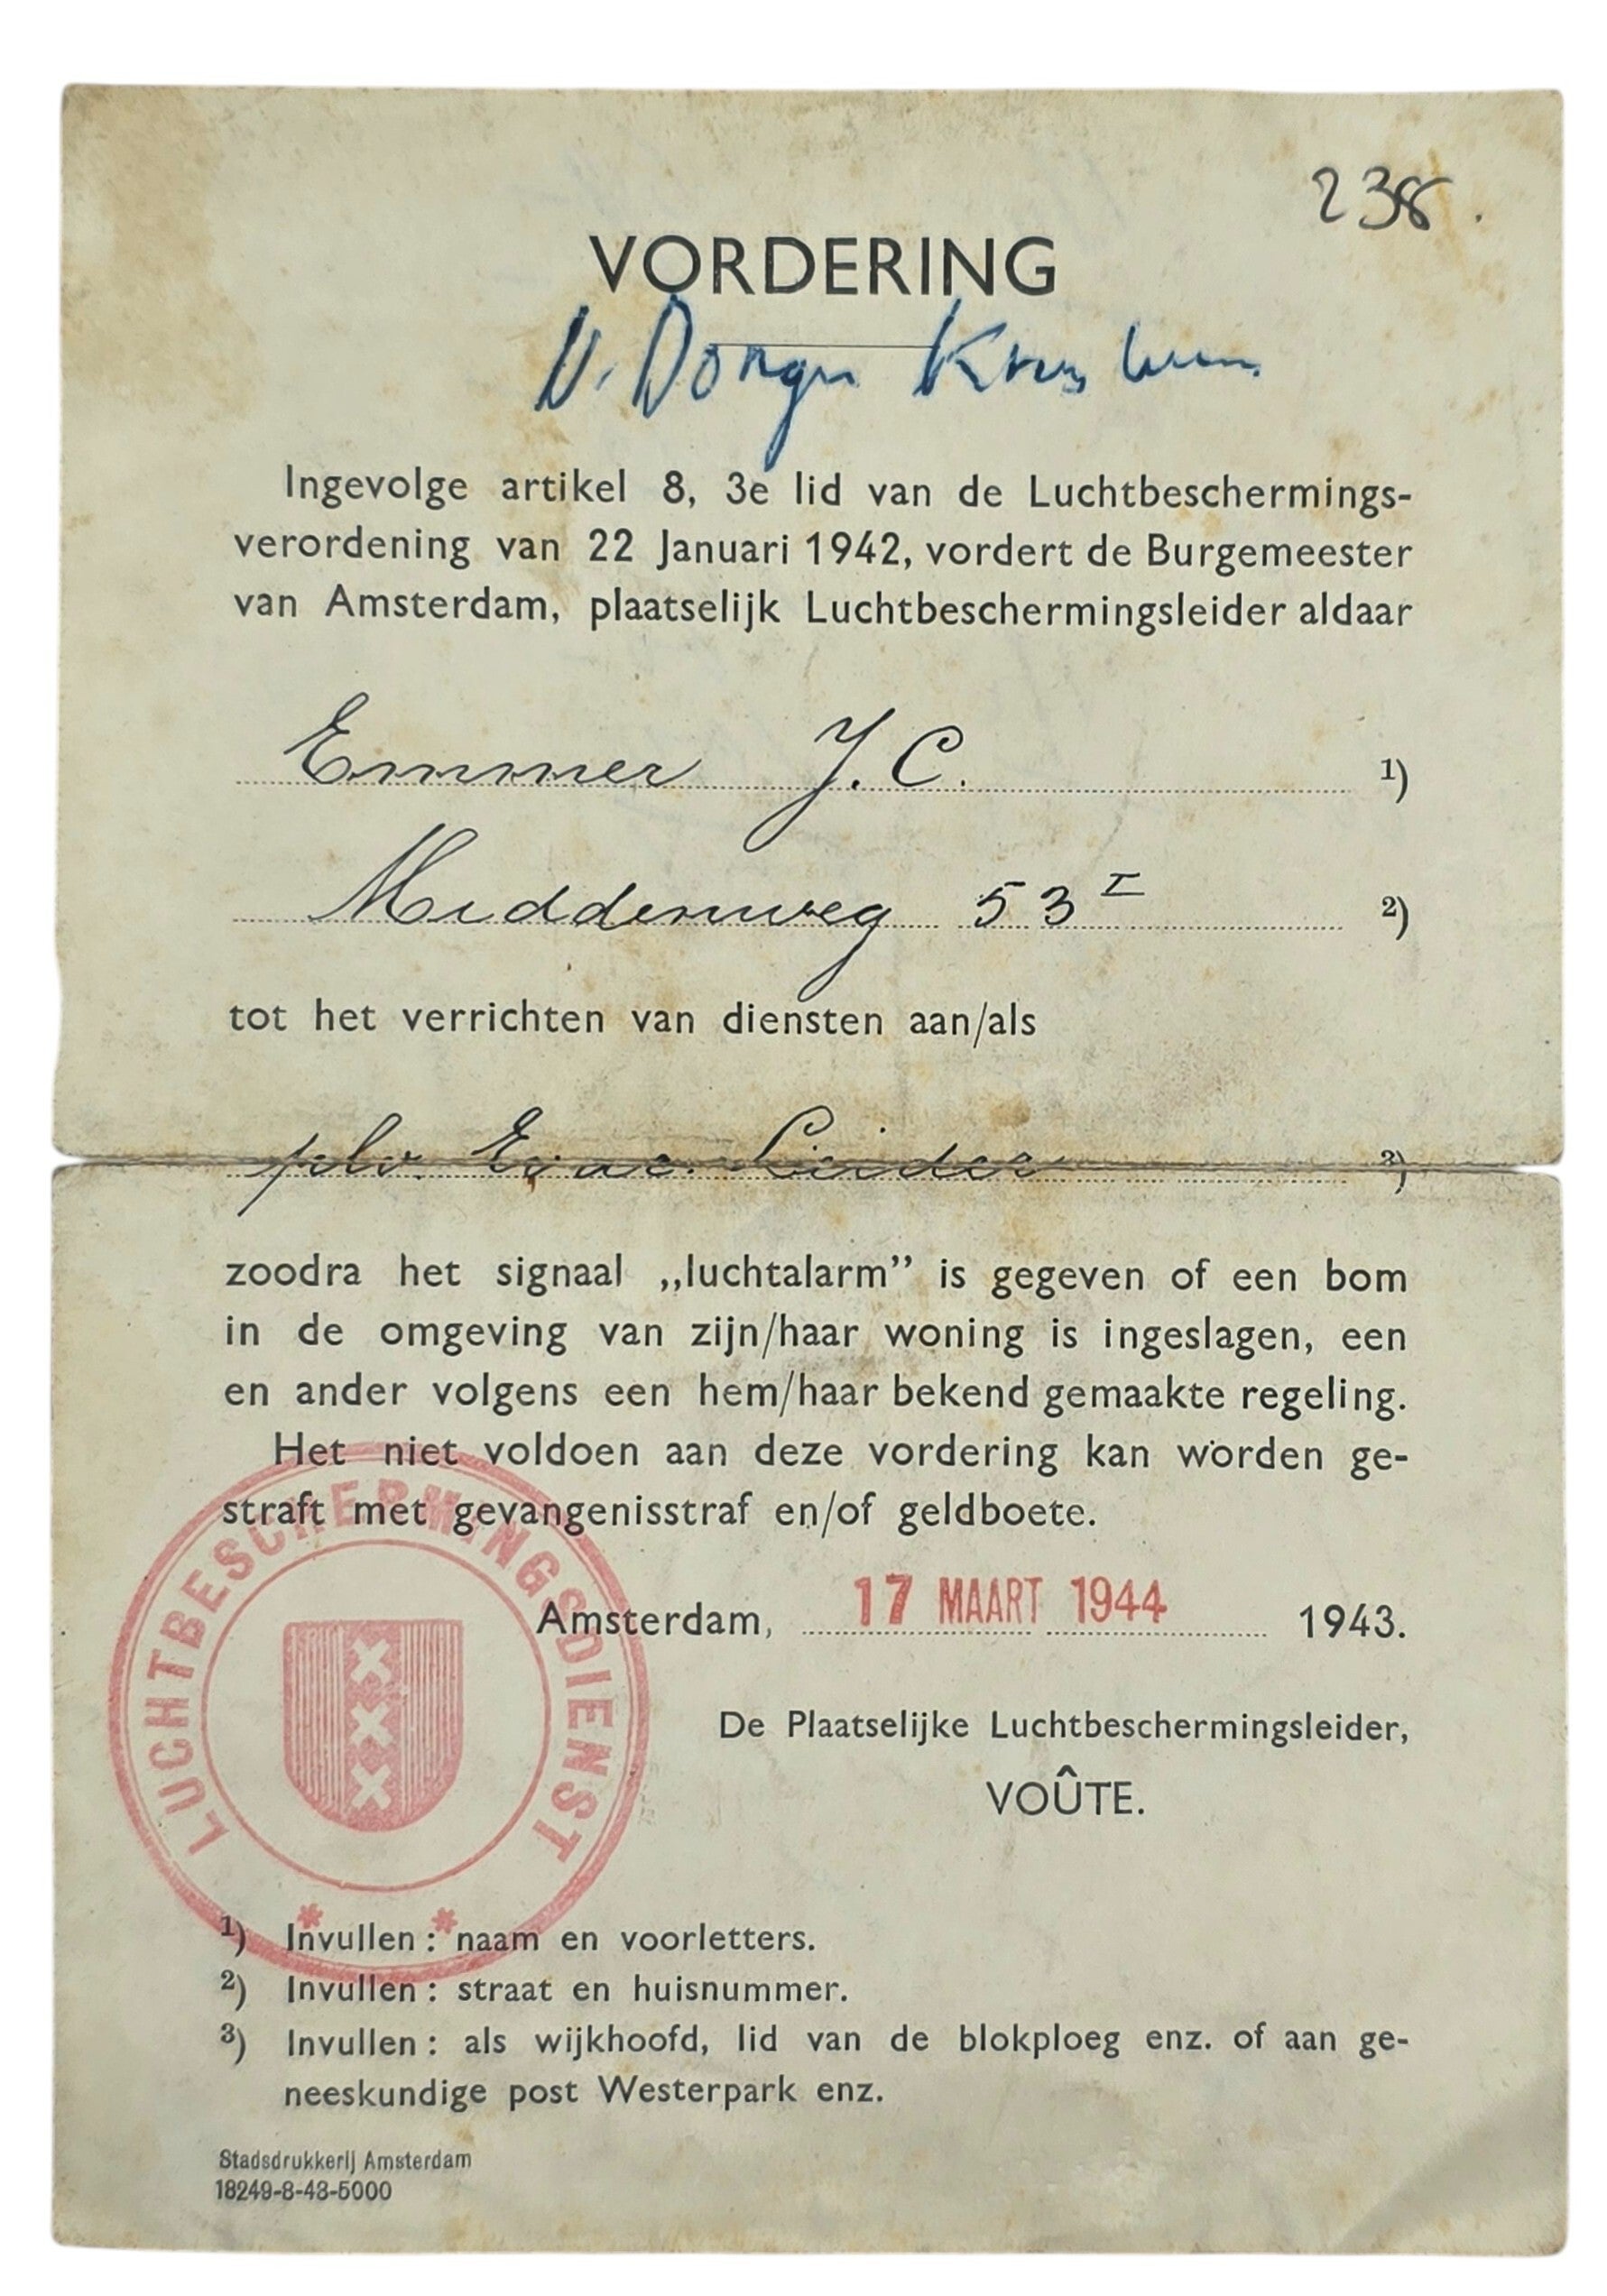 238.
VORDERING
Ingevolge artikel 8, 3e lid van de Luchtbeschermings-
verordening van 22 Januari 1942, vordert de Burgemeester
van Amsterdam, plaatselijk Luchtbeschermingsleider aldaar
Emmer J. C. 1)
Middenweg 53 I 2)
tot het verrichten van diensten aan/als
plv. Leider 3)
zoodra het signaal „luchtalarm” is gegeven of een bom
in de omgeving van zijn/haar woning is ingeslagen, een
en ander volgens een hem/haar bekend gemaakte regeling.
Het niet voldoen aan deze vordering kan worden ge-
straft met gevangenisstraf en/of geldboete.
LUCHTBESCHERMINGSDIENST
Amsterdam, 17 MAART 1944 1943.
De Plaatselijke Luchtbeschermingsleider,
VOÛTE.
1) Invullen: naam en voorletters.
2) Invullen: straat en huisnummer.
3) Invullen: als wijkhoofd, lid van de blokploeg enz. of aan ge-
neeskundige post Westerpark enz.
Stadsdrukkerij Amsterdam
18249-8-43-5000